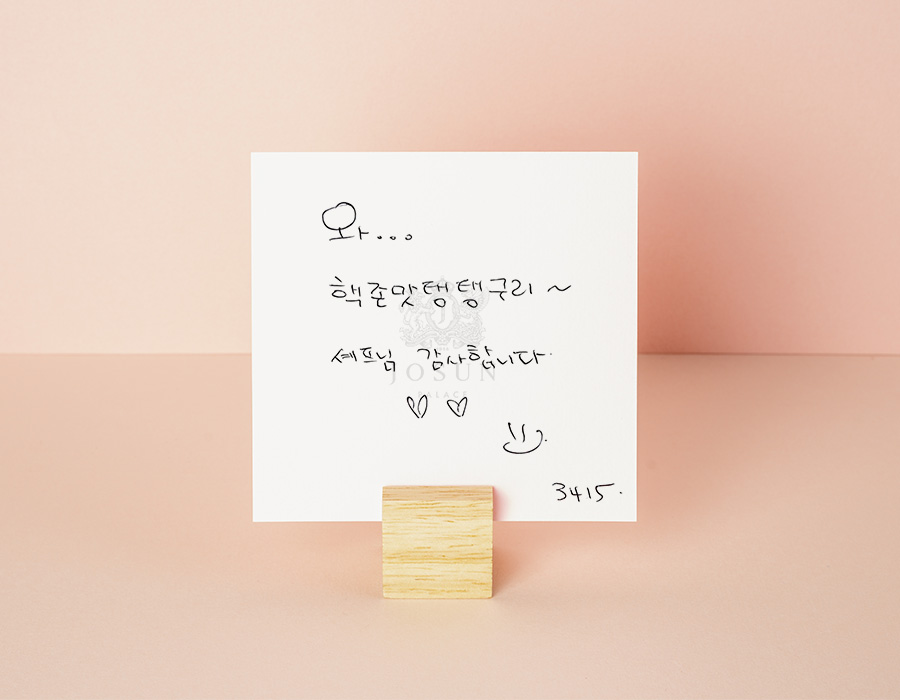 와...
핵존맛탱탱구리~
셰프님 감사합니다.
JOSUN
PALACE
3415.